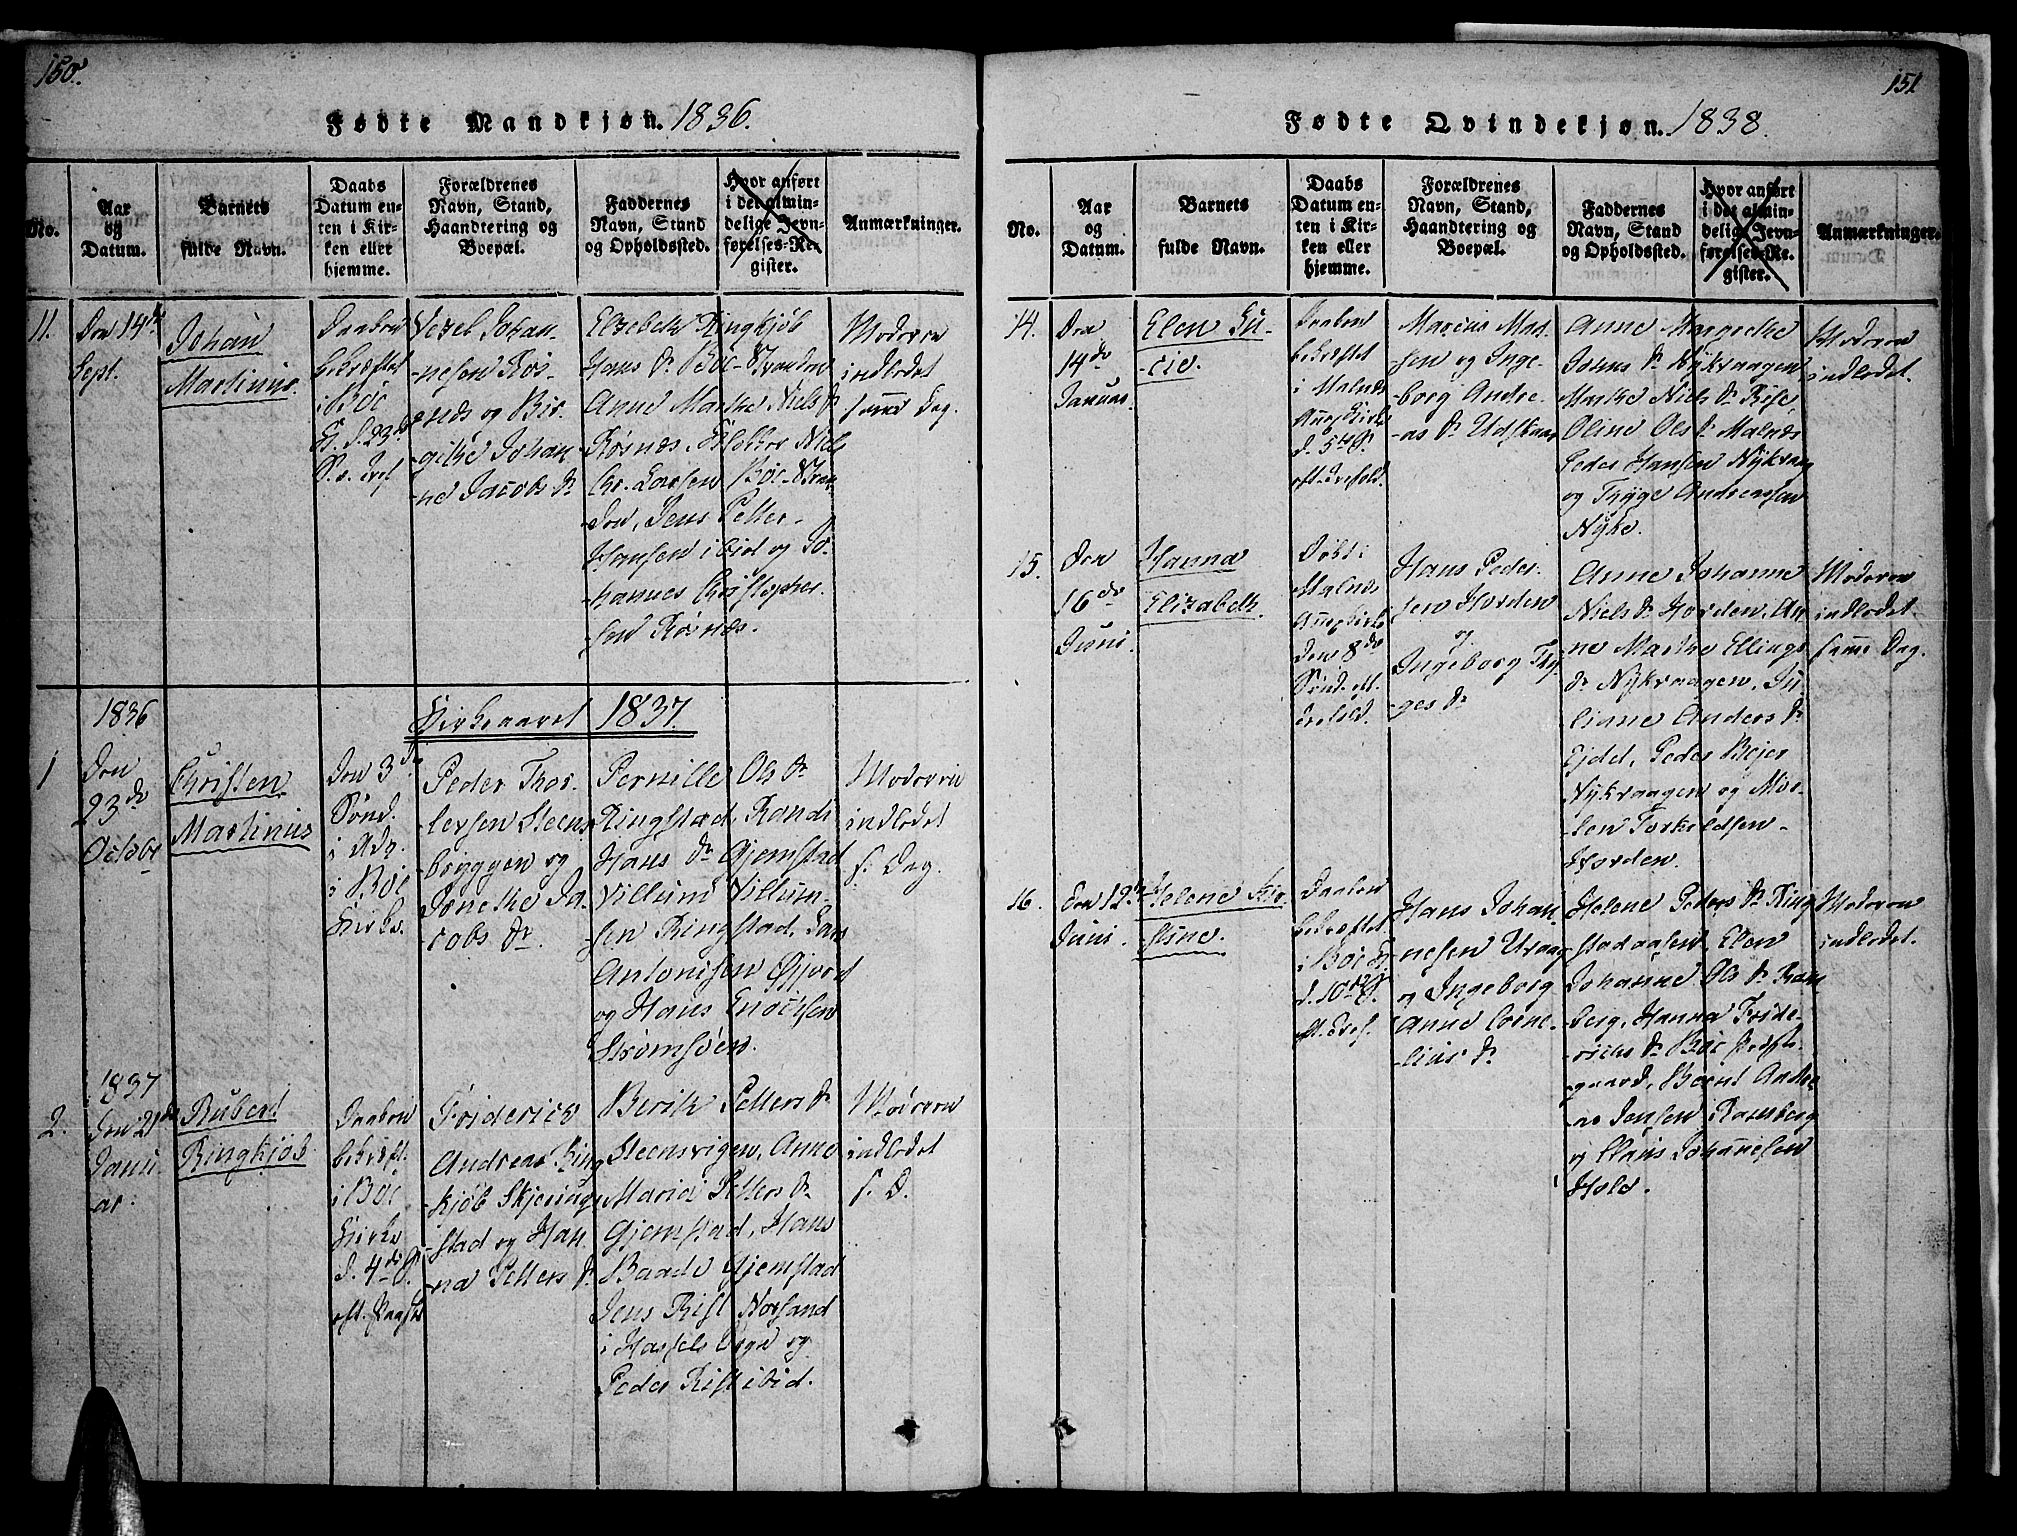 150.
Fødte Mandkjøn. 1836.
No.
Aar
og
Datum.
Barnets
fulde Navn.
Daabs
Datum en-
ten i Kir-
ken eller
hjemme.
Forældrenes
Navn, Stand,
Haandtering og
Boepæl.
Faddernes
Navn, Stand
og Opholdssted.
Hvor anført
i det almin-
delige Jevn-
førelses-Re-
gister.
Anmærkninger.
11.
Den 14de
Sept.
Johan
Martinus.
Daaben
bekræftet
i Böe
K. d. 23de
Vezel Johan-
nesen Ros-
næs og Bir-
githe Johan-
ne Jacobs Dr
Elzebeth Ringkjøb
Hans Dr Böe-Stranden
Anne Marthe Niels Dr
Rösnæs, Niels
Chr. Larsen Böe-Stran-
den, Jens Petter
Hansen ibid og Jo-
hannes Christopher-
sen Rösnæs.
Moderen
indledet
samme Dag.
Kirkeaaret 1837.
1
1836
Den
23de
Octobr
Christen
Martinus
Den 3de
Sönd.
i Adv.
i Böe
Kirke.
Peder Thor-
lersen Steens-
bryggen og
Jonethe Ja-
cobs Dr.
Pernille Ols Dr
Ringstad, Randi
Hans Dr Gjemstad
Villum Villum-
sen Ringstad, Lars
Antonisen Gjorod
og Hans Enochsen
Strömsöen.
Moderen
indledet
s. Dag.
2.
1837
Den 21de
Janu-
ar.
Rubert
Ringkjöb
Daaben
bekræft.
i Böe
Kirke
d. 4de S.
eft. Paaske
Friderich
Andreas Ring-
kjöb Skjerings-
stad og Han-
na Petters Dr
Berith Petters Dr
Steensvigen, Anne
Maria Petters Dr
Gjemstad, Hans
Baade Gjemstad
Jens Rist Norsand
i Hassels Sogn og
Peder Rist ibid.
Moderen
indledet
s. D.
151
Fødte Qvindekjøn. 1838.
No.
Aar
og
Datum.
Barnets
fulde Navn.
Daabs
Datum en-
ten i Kir-
ken eller
hjemme.
Forældrenes
Navn, Stand,
Haandtering og
Boepæl.
Faddernes
Navn, Stand
og Opholdssted.
Hvor anført
i det almin-
delige Jevn-
førelses-Re-
gister.
Anmærkninger.
14.
Den
14de
Januar.
Elen Lu-
cie.
Daaben
bekræftet
i Malnes
Annexkirke
d. 5te S.
eft. Trefold.
Marcus Mad-
sen og Inge-
borg Andre-
as Dr Udskaar
Anne Margrethe
Johns Dr Nykvaagen
Marthe Niels Dr Rise,
Oline Ols Dr Malnes
Peder Hansen Nykvaag
og Thyge Andreassen
Nyke.
Moderen
indledet.
15.
Den
16de
Juni.
Hanna
Elizabeth.
Döbt i
Malnes
Annexkirke
Den 8de
Sönd. eft.
Trefold.
Hans Peder-
sen Horden
og
Ingeborg Thy-
ges Dr
Anne Johanne
Niels Dr Horden, An-
ne Marthe Ellings
Dr Nykvaagen, Ju-
liane Anders Dr
Ejde, Peder Bejer
Nykvaagen og Mor-
ten Torkeldsen
Horden.
Moderen
indledet
samme Dag.
16.
Den 12te
Juni.
Helene Kir-
stine.
Daaben
bekræftet
i Böe K.
d. 10de S.
eft. Tref.
Hans Johan-
nesen Uvaag
og Ingeborg
Anne Corne-
lius Dr
Helene Peders Dr Ring-
stadaasen, Elen
Johanne Ols Dr Ram-
berg, Hanna Fride-
richs Dr Böe Præste-
gaard, Bernt Andre-
as Jensen Ramberg
og Claus Johannesen
Hold.
Moderen
indledet.